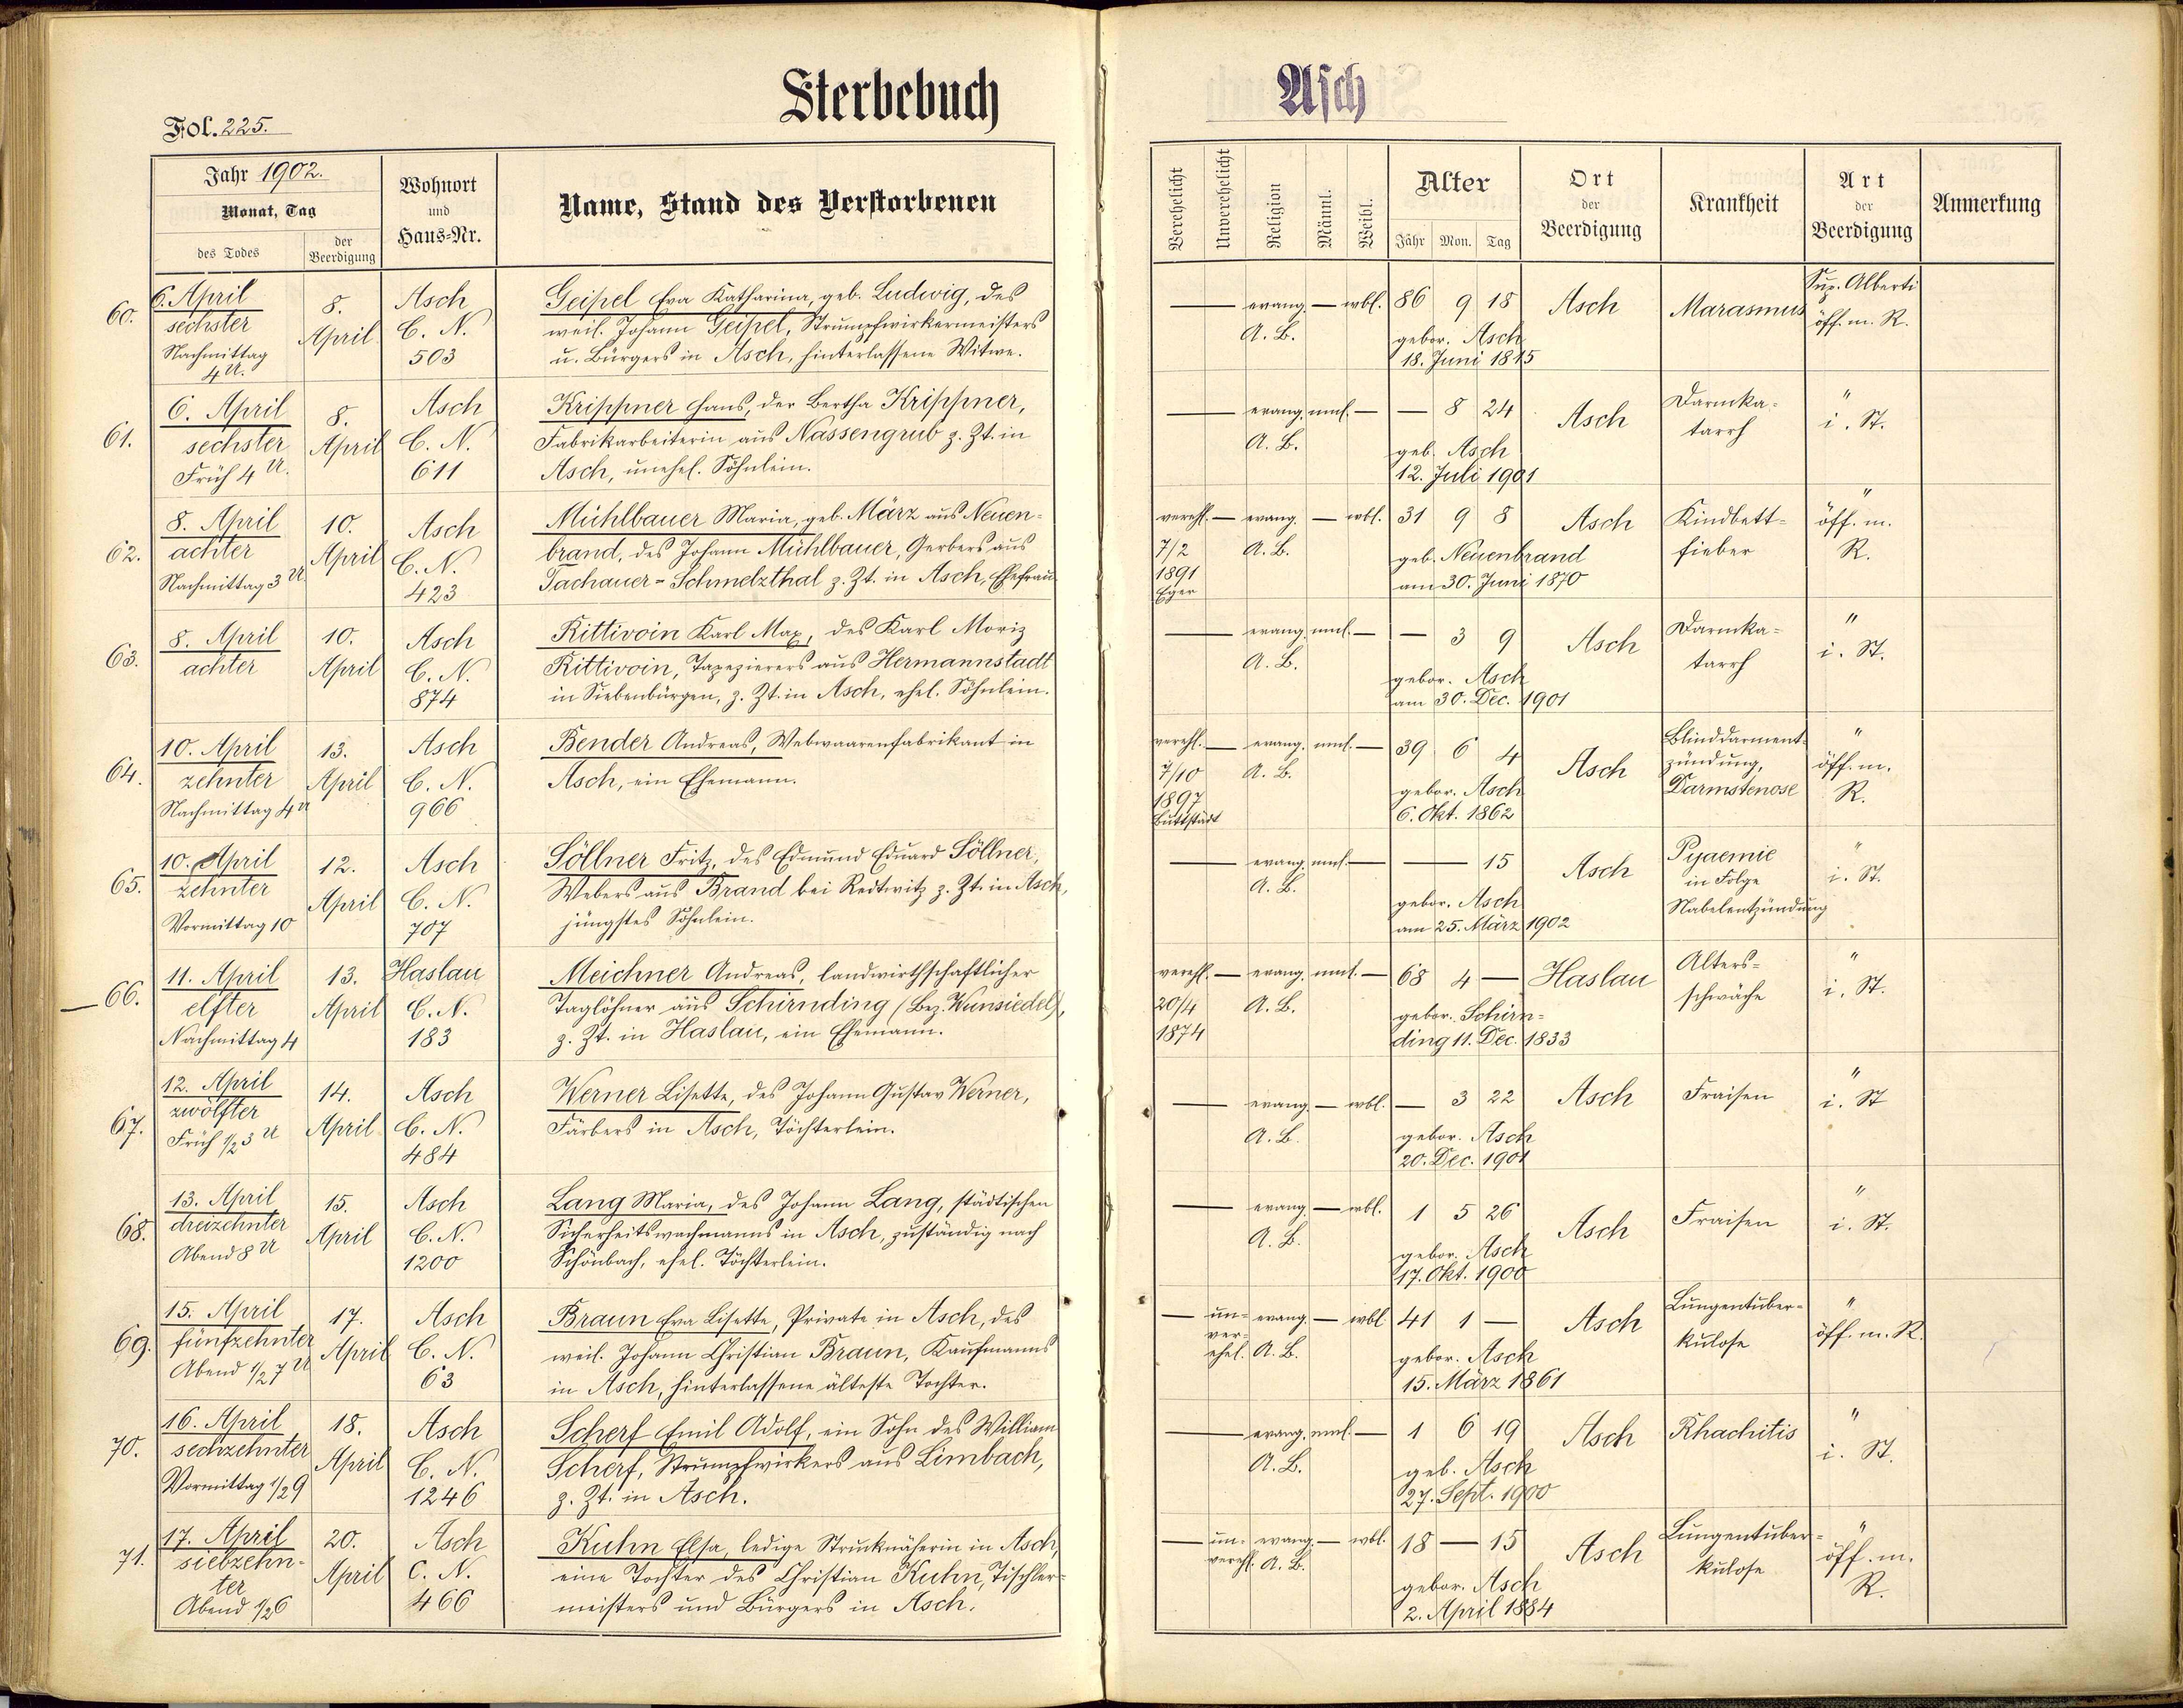 Sterbebuch
Asch
Fol. 225.
Jahr 1902.
Monat, Tag
des Todes
der Beerdigung
Wohnort
und
Haus=Nr.
Name, Stand des Verstorbenen
Verehelicht
Unverehelicht
Religion
Männl.
Weibl.
Alter
Jahr Mon. Tag
Ort
der
Beerdigung
Krankheit
Art
der
Beerdigung
Anmerkung
60.
6. April
sechster
Nachmittag
4 U.
8.
April
Asch
C. N.
503
Geipel Eva Katharina, geb. Ludwig, des
weil. Johann Geipel, Strumpfwirkermeisters
u. Bürgers in Asch, hinterlassene Witwe.
— evang. — wbl.
A. B.
86 9 18
gebor. Asch
18. Juni 1815
Asch
Marasmus
Sup. Alberti
öff. m. R.
61.
6. April
sechster
Früh 4 U.
8.
April
Asch
C. N.
611
Krippner Hans, der Bertha Krippner,
Fabrikarbeiterin aus Nassengrub z. Zt. in
Asch, unehel. Söhnlein.
— evang. mnl. —
A. B.
— 8 24
geb. Asch
12. Juli 1901
Asch
Darmka=
tarrh
"
i. St.
62.
8. April
achter
Nachmittag 3 U.
10.
April
Asch
C. N.
423
Mühlbauer Maria, geb. März aus Neuen=
brand, des Johann Mühlbauer, Gerbers aus
Tachauer=Schmelzthal z. Zt. in Asch, Ehefrau
verehl. — evang. — wbl.
7/2
1891
Eger
A. B.
31 9 8
geb. Neuenbrand
am 30. Juni 1870
Asch
Kindbett=
fieber
"
öff. m.
R.
63.
8. April
achter
10.
April
Asch
C. N.
874
Rittivoin Karl Max, des Karl Moriz
Rittivoin, Tapezierers aus Hermannstadt
in Siebenbürgen, z. Zt. in Asch, ehel. Söhnlein.
— evang. mnl. —
A. B.
— 3 9
gebor. Asch
am 30. Dec. 1901
Asch
Darmka=
tarrh
"
i. St.
64.
10. April
zehnter
Nachmittag 4 U
13.
April
Asch
C. N.
966
Bender Andreas, Webwaarenfabrikant in
Asch, ein Ehemann.
verehl. — evang. mnl. —
7/10
1897
Buttstädt
A. B.
39 6 4
gebor. Asch
6. Okt. 1862
Asch
Blinddarment=
zündung,
Darmstenose
"
öff. m.
R.
65.
10. April
zehnter
Vormittag 10
12.
April
Asch
C. N.
707
Söllner Fritz, des Edmund Eduard Söllner,
Webers aus Brand bei Redtwitz z. Zt. in Asch,
jüngstes Söhnlein.
— evang. mnl. —
A. B.
— 15
gebor. Asch
am 25. März 1902
Asch
Pyaemie
in Folge
Nabelentzündung
"
i. St.
— 66.
11. April
elfter
Nachmittag 4
13.
April
Haslau
C. N.
183
Meichner Andreas, landwirthschaftlicher
Taglöhner aus Schirnding (Bez. Wunsiedel),
z. Zt. in Haslau, ein Ehemann.
verehl. — evang. mnl. —
20/4
1874
A. B.
68 4 —
gebor. Schirn=
ding 11. Dec. 1833
Haslau
Alters=
schwäche
"
i. St.
67.
12. April
zwölfter
Früh 1/2 3 U
14.
April
Asch
C. N.
484
Werner Lisette, des Johann Gustav Werner,
Färbers in Asch, Töchterlein.
— evang. — wbl.
A. B.
— 3 22
gebor. Asch
20. Dec. 1901
Asch
Fraisen
"
i. St
68.
13. April
dreizehnter
Abend 8 U
15.
April
Asch
C. N.
1200
Lang Maria, des Johann Lang, städtischen
Sicherheitswachmanns in Asch, zuständig nach
Schönbach, ehel. Töchterlein.
— evang. — wbl.
A. B.
1 5 26
gebor. Asch
17. Okt. 1900
Asch
Fraisen
"
i. St.
69.
15. April
fünfzehnter
Abend 1/2 7 U
17.
April
Asch
C. N.
63
Braun Eva Lisette, Private in Asch, des
weil. Johann Christian Braun, Kaufmanns
in Asch, hinterlassene älteste Tochter.
— un=
ver=
ehel.
evang. — wbl
A. B.
41 1 —
gebor. Asch
15. März 1861
Asch
Lungentuber=
kulose
"
öff. m. R.
70.
16. April
sechzehnter
Vormittag 1/2 9
18.
April
Asch
C. N.
1246
Scherf Emil Adolf, ein Sohn des William
Scherf, Strumpfwirkers aus Limbach,
z. Zt. in Asch.
— evang. mnl. —
A. B.
1 6 19
geb. Asch
27. Sept. 1900
Asch
Rhachitis
"
i. St.
71.
17. April
siebzehn=
ter
Abend 1/2 6
20.
April
Asch
C. N.
466
Kuhn Elsa, ledige Strucknäherin in Asch,
eine Tochter des Christian Kuhn, Tischler=
meisters und Bürgers in Asch.
— un=
verehl.
evang. — wbl.
A. B.
18 — 15
gebor. Asch
2. April 1884
Asch
Lungentuber=
kulose
"
öff. m.
R.